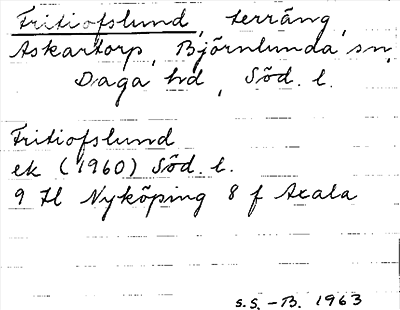 Fritiofslund, terräng,
Askartorp, Björnlunda sn,
Daga hd, Söd. l.
Fritiofslund
ek (1960) Söd. l.
9 H Nyköping 8 f Axala
S.S. -B. 1963